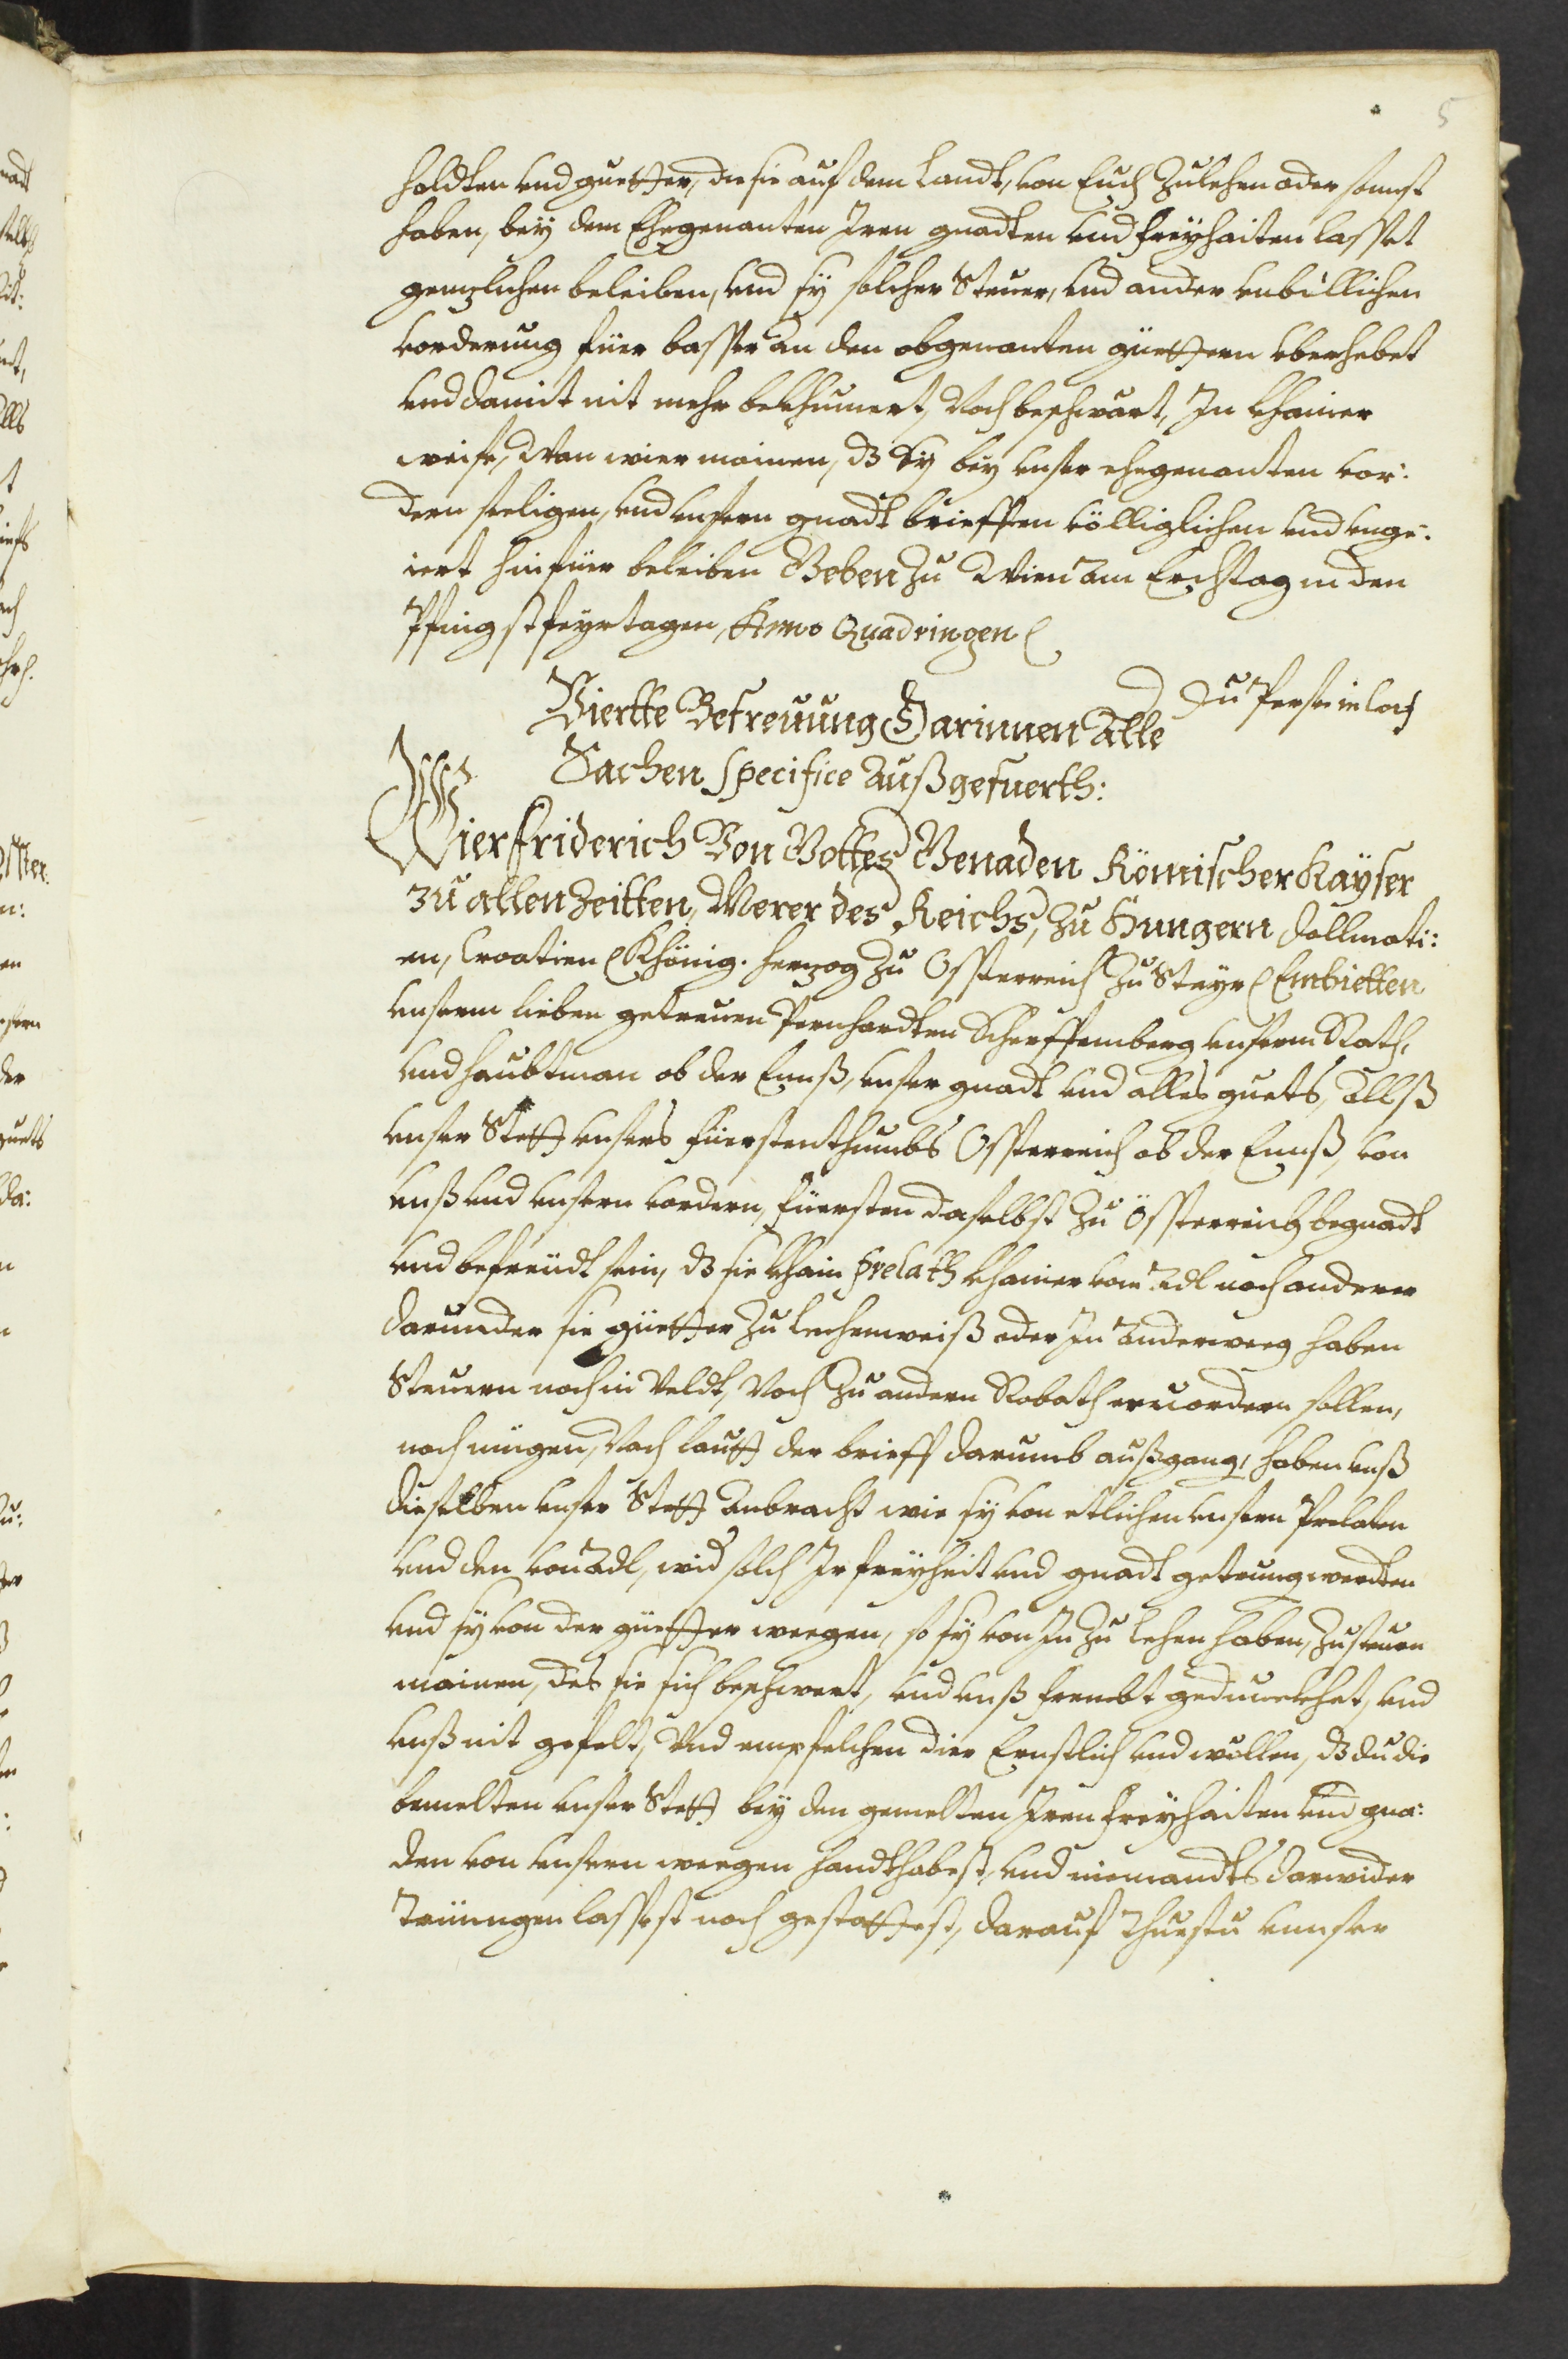 5
holdten vnd guetter, die sie auf dem Landt, von Euch zulehen oder sonnst
haben, bey dem Ehegenanten Iren gnadten vnd freyhaiten lasset
genzlichen beleiben, vnd sy solcher Steuer, vnd ander vnbillichen
vorderung füer basser an den obgenanten güettern vberhebet
vnd damit nit mehr bekhumert, Noch beschwärt, In khainer
weise, Wan wier mainen, dz Sy bey vnser ehegenanten vor:
dern seeligen, vnd vnsern gnadt brieffen völliglichen vnd vnge:
iert hinfüer beleiben Geben zu Wien am Erchtag in den
Pfingstfeyrtagen, Anno Quadringen
Du Perse in loch
Viertte Befreuung Darinnen Alle
Sachen specifice Außgefuerth:
Wier Friderich Von Gottes Genaden Römischer Kayser
zu allen Zeitten, Merer des Reichs, zu Hungern Dallmati:
en, Croatien Khönig. herzog zu Össterreich zu Steyr Embietten
vnserm lieben getreuen Pernhardten Scherffemberg vnserm Rath,
vnd haubtman ob der Ennß, vnser gnadt vnd alles guets, Allß
vnser Stett vnsers füerstenthumbs Össterreich ob der Ennß, von
vnß vnd vnsern vordern, füersten daselbst zu Össterreich begnadt
vnd befreudt sein, dz sie khain Prelath khainer vom Adl noch anderer
darunder sie güetter zu Lechenweiß oder In anderweeg haben
Steuern noch in Veldt, Noch zu andern Robath eruordern sollen,
noch mügen, Nach lautt der brieff darumb außgang, haben vnß
dieselben vnser Stett anbracht wie sy von etlichen vnsern Prelaten
vnd den von Adl, wid solch Ir freyheit vnd gnadt getrung werdten
vnd sy von der güetter weegen, so sy von In zu lehen haben, zusteuern
mainen, des sie sich beschwert, vnd vnß frembt gedunckhet, vnd
vnß nit gefelt, Vnd empfelchen dier Ernstlich vnd wöllen, dz du die
bemelten vnser Stett bey den gemelten Iren freyhaiten vnd gna:
den von vnsern weegen handthabest, vnd niemandts darwider
Tringen lassest noch gestattest, darauf thuestu vnnser